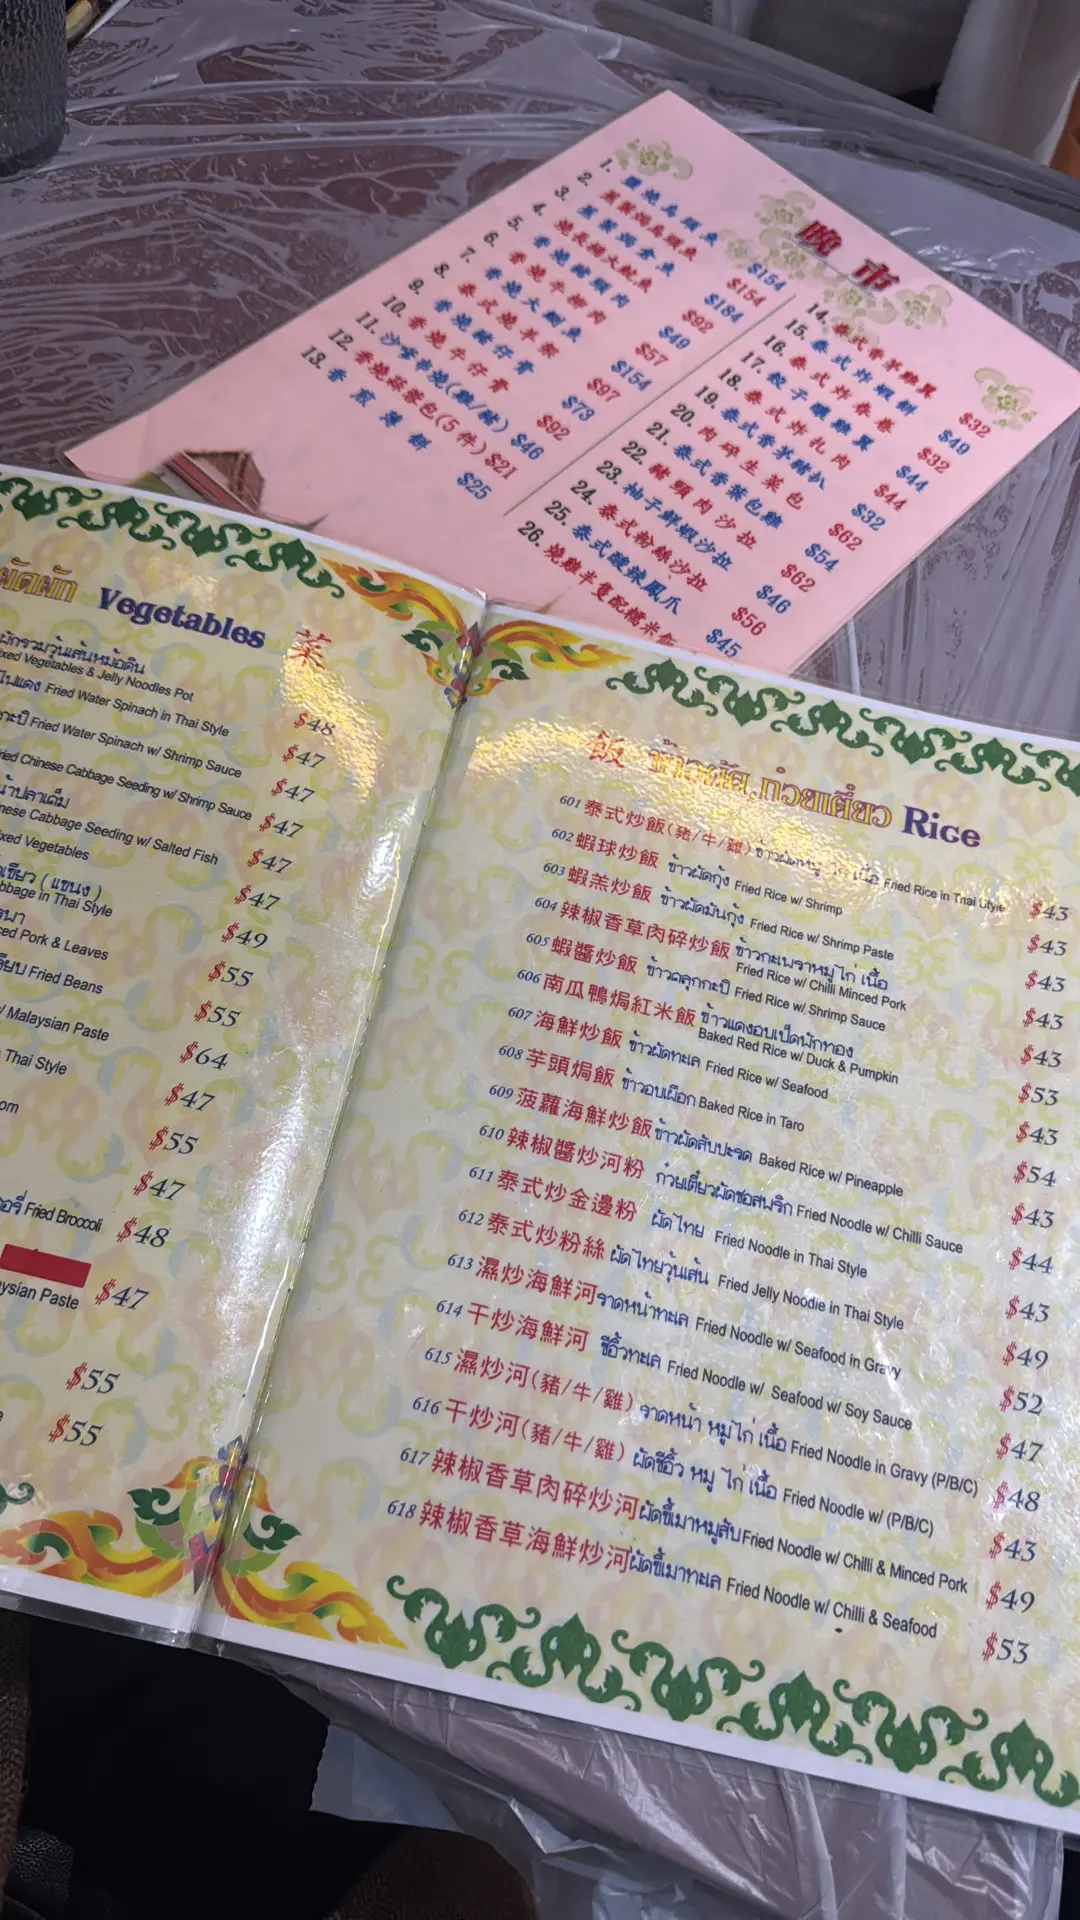 晚市
1. 鹽燒烏頭魚 $154
2. 蒸製焗烏頭魚 $154
3. $184
4. 燒長揚大魷魚 $92
5. 香燒豬頸肉 $49
6. 香燒牛柳肉 $57
7. 香燒大鯛魚 $154
8. 泰式燒羊架 $97
9. 香燒豬仔骨 $73
10. 香燒牛仔骨 $92
11. 沙嗲串燒(雞/豬) $46
12. 香燒蒜蓉包(5件) $21
13. 香煎薄餅 $25
14. 泰式香茅雞翼 $32
15. 泰式炸蝦餅 $49
16. 泰式炸春卷 $32
17. 餃子釀雞翼 $44
18. 泰式炸扎肉 $44
19. 泰式香茅豬扒 $32
20. 肉碎生菜包 $62
21. 泰式香葉包雞 $54
22. 豬頸肉沙拉 $62
23. 柚子鮮蝦沙拉 $46
24. 泰式粉絲沙拉 $56
25. 泰式酸辣鳳爪 $45
26. 燒雞半隻配糯米飯
ผัดผัก Vegetables 菜
ผักรวมวุ้นเส้นหม้อดิน
Vegetables & Jelly Noodles Pot $48
ไฟแดง Fried Water Spinach in Thai Style $47
Fried Water Spinach w/ Shrimp Sauce $47
Chinese Cabbage Seeding w/ Shrimp Sauce $47
น้ำปลาเค็ม
Cabbage Seeding w/ Salted Fish $47
Vegetables $47
( แขนง )
in Thai Style $49
Pork & Leaves $55
Fried Beans $55
w/ Malaysian Paste $64
Thai Style $47
$55
$47
Fried Broccoli $48
Paste $47
$55
$55
飯 ข้าวผัด,ก๋วยเตี๋ยว Rice
601 泰式炒飯(豬/牛/雞) ข้าวผัดหมู ไก่ เนื้อ Fried Rice in Thai Style $43
602 蝦球炒飯 ข้าวผัดกุ้ง Fried Rice w/ Shrimp $43
603 蝦羔炒飯 ข้าวผัดมันกุ้ง Fried Rice w/ Shrimp Paste $43
604 辣椒香草肉碎炒飯 ข้าวกะเพราหมู ไก่ เนื้อ
Fried Rice w/ Chilli Minced Pork $43
605 蝦醬炒飯 ข้าวคลุกกะปิ Fried Rice w/ Shrimp Sauce $43
606 南瓜鴨焗紅米飯 ข้าวแดงอบเป็ดฟักทอง
Baked Red Rice w/ Duck & Pumpkin $53
607 海鮮炒飯 ข้าวผัดทะเล Fried Rice w/ Seafood $43
608 芋頭焗飯 ข้าวอบเผือก Baked Rice in Taro $54
609 菠蘿海鮮炒飯 ข้าวผัดสับปะรด Baked Rice w/ Pineapple $43
610 辣椒醬炒河粉 ก๋วยเตี๋ยวผัดซอสพริก Fried Noodle w/ Chilli Sauce $44
611 泰式炒金邊粉 ผัดไทย Fried Noodle in Thai Style $43
612 泰式炒粉絲 ผัดไทยวุ้นเส้น Fried Jelly Noodle in Thai Style $49
613 濕炒海鮮河 ราดหน้าทะเล Fried Noodle w/ Seafood in Gravy $52
614 干炒海鮮河 ซีอิ้วทะเล Fried Noodle w/ Seafood w/ Soy Sauce $47
615 濕炒河(豬/牛/雞) ราดหน้า หมู ไก่ เนื้อ Fried Noodle in Gravy (P/B/C) $48
616 干炒河(豬/牛/雞) ผัดซีอิ้ว หมู ไก่ เนื้อ Fried Noodle w/ (P/B/C) $43
617 辣椒香草肉碎炒河 ผัดขี้เมาหมูสับ Fried Noodle w/ Chilli & Minced Pork $49
618 辣椒香草海鮮炒河 ผัดขี้เมาทะเล Fried Noodle w/ Chilli & Seafood $53